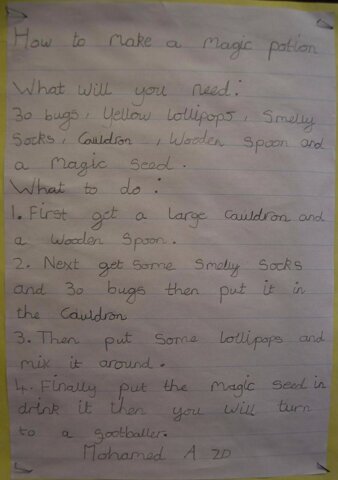 How to make a magic potion
What will you need:
30 bugs, Yellow lollipops, Smelly
Socks, Cauldron , Wooden Spoon and
a Magic Seed.
What to do :
1. First get a large cauldron and
a Wooden Spoon.
2. Next get some smelly socks
and 30 bugs then put it in
the Cauldron
3. Then put some lollipops and
mix it around.
4. Finally put the magic seed in
drink it then you will turn
to a gootballer.
Mohamed A 2D